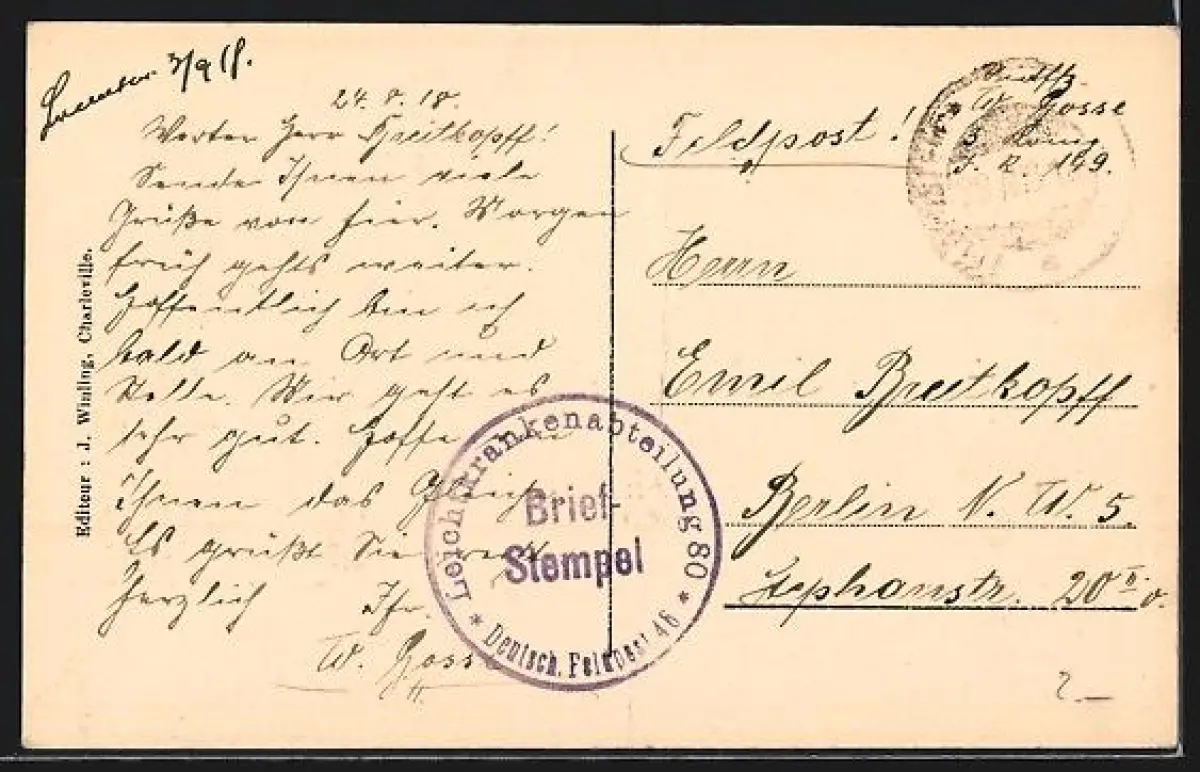 3/9 18.
24. 8. 18.
Werter Herr Breitkopff!
Sende Ihnen viele
Grüße von hier. Morgen
früh gehts weiter.
Hoffentlich bin ich
bald an Ort und
Stelle. Mir geht es
sehr gut. Hoffe
Ihnen das Gleiche
Es grüßt Sie recht
herzlich Ihr
W. Gosse
Editeur : J. Winling, Charleville.
Feldpost!
W. Gosse
J. R. 149.
Herrn
Emil Breitkopff
Berlin N. W. 5.
Stephanstr. 20 II v.
Leichtkrankenabteilung 80
Brief-
Stempel
* Deutsch. Feldpost 46 *